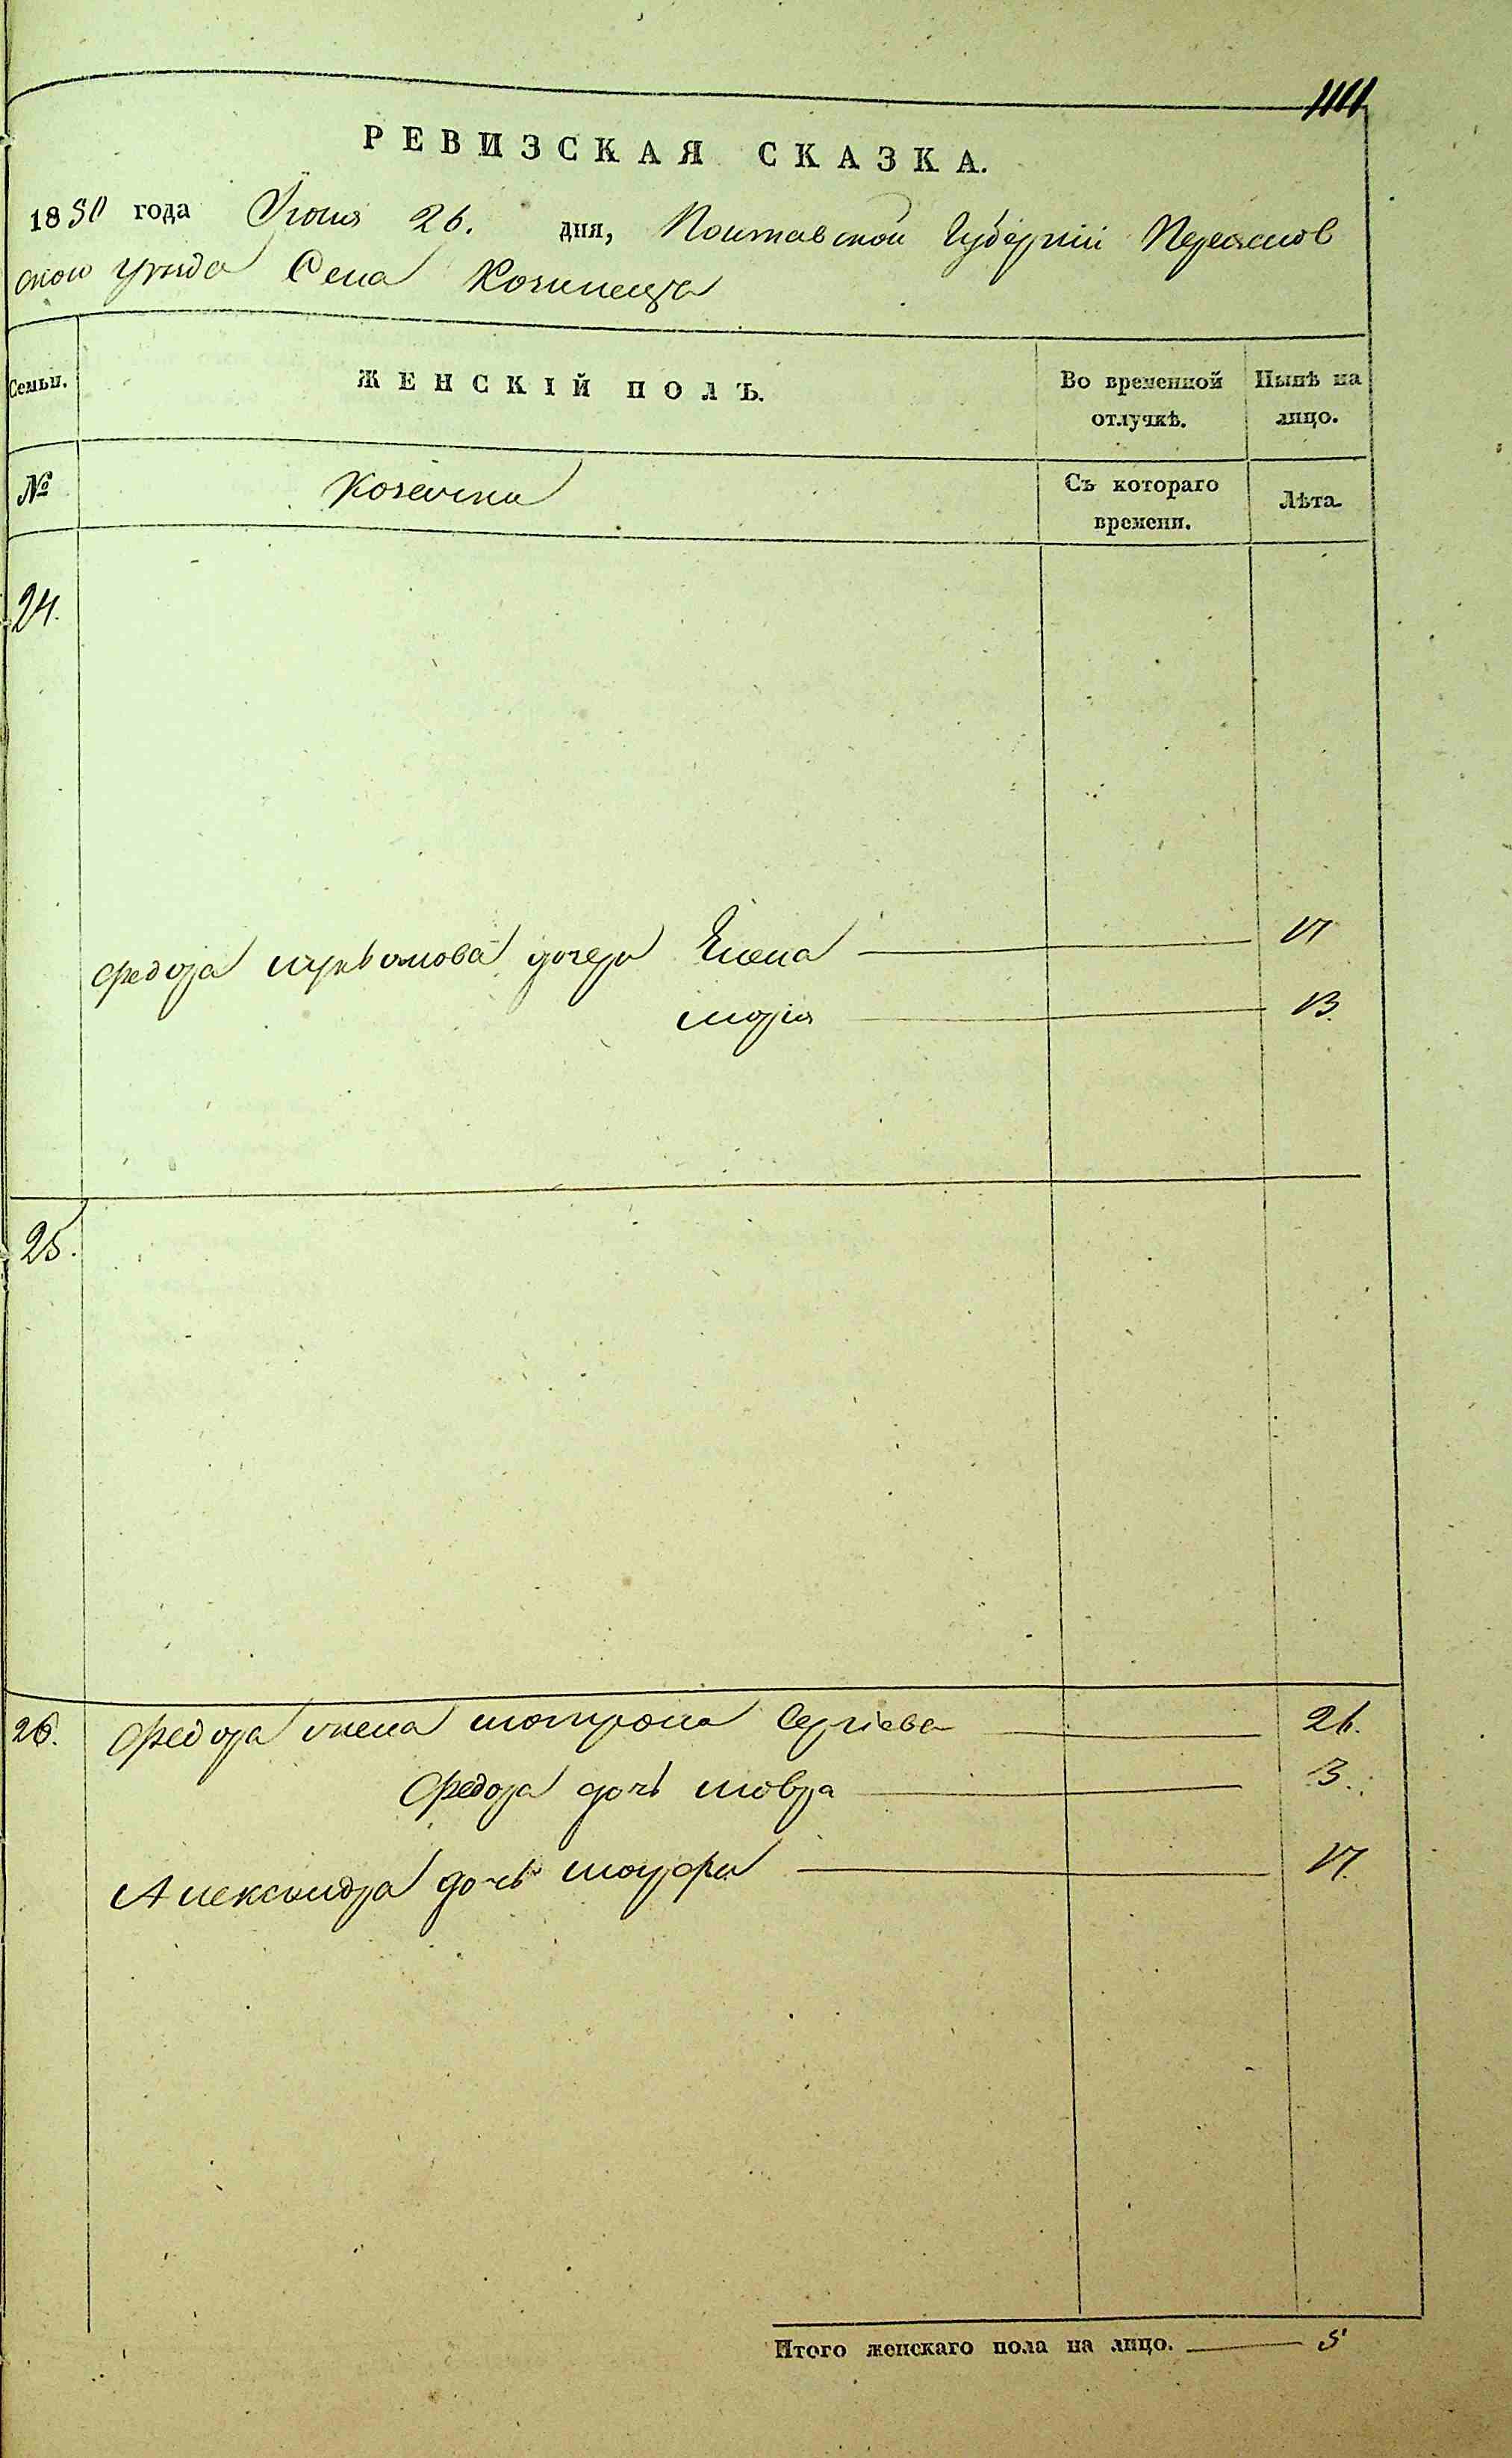 РЕВИЗСКАЯ СКАЗКА.
1850 года Июня 26. дня, Полтавской Губерніи Переяслов
ского уезда Села
Семьи.
ЖЕНСКІЙ ПОЛЪ.
Во временной отлучкѣ.
Нынѣ на лицо.
№
Съ котораго времени.
Лѣта.
24.
Федора дочери Елена 17
марія 13.
25.
26. Федора жена матрона Сергіева 26.
Федора дочь мавра 3.
Александра дочь марфа 17.
Итого женскаго пола на лицо. 5